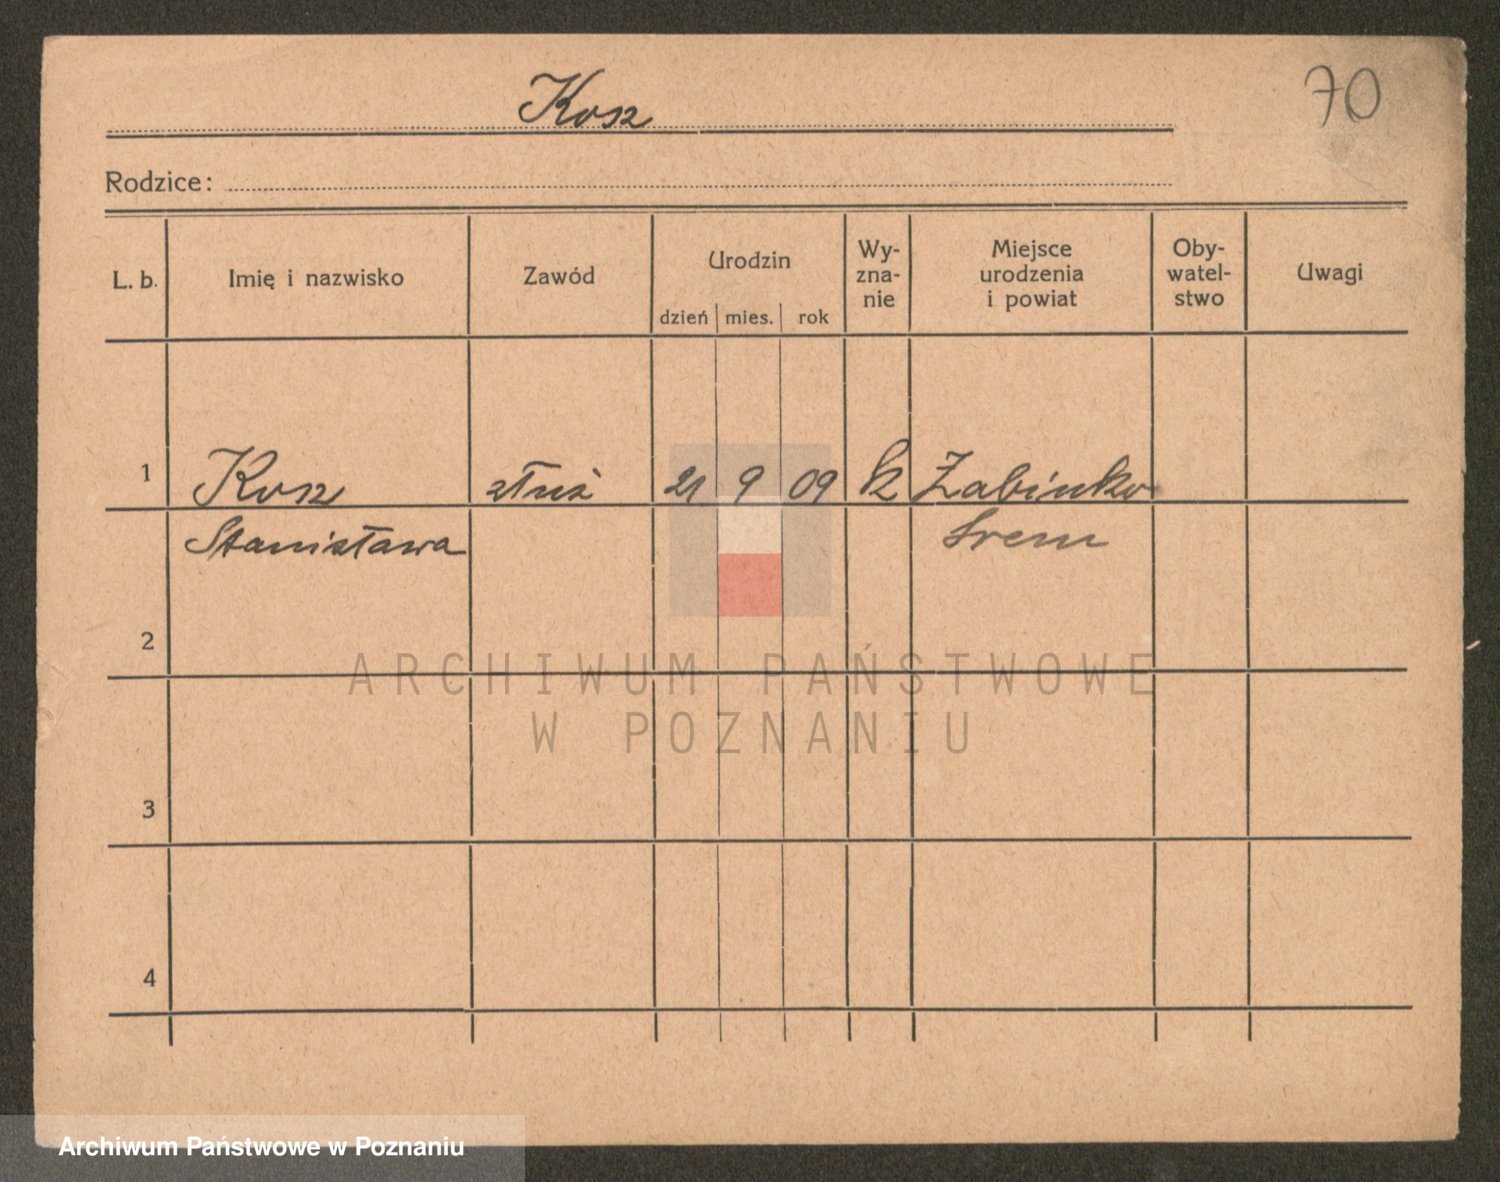 Kosz
70
Rodzice:
L. b. Imię i nazwisko Zawód Urodzin Wy-zna-nie Miejsce urodzenia i powiat Oby-watel-stwo Uwagi
dzień mies. rok
1 Kosz służ 21 9 09 k Żabinko
Stanisława Srem
2
ARCHIWUM PAŃSTWOWE
W POZNANIU
3
4
Archiwum Państwowe w Poznaniu